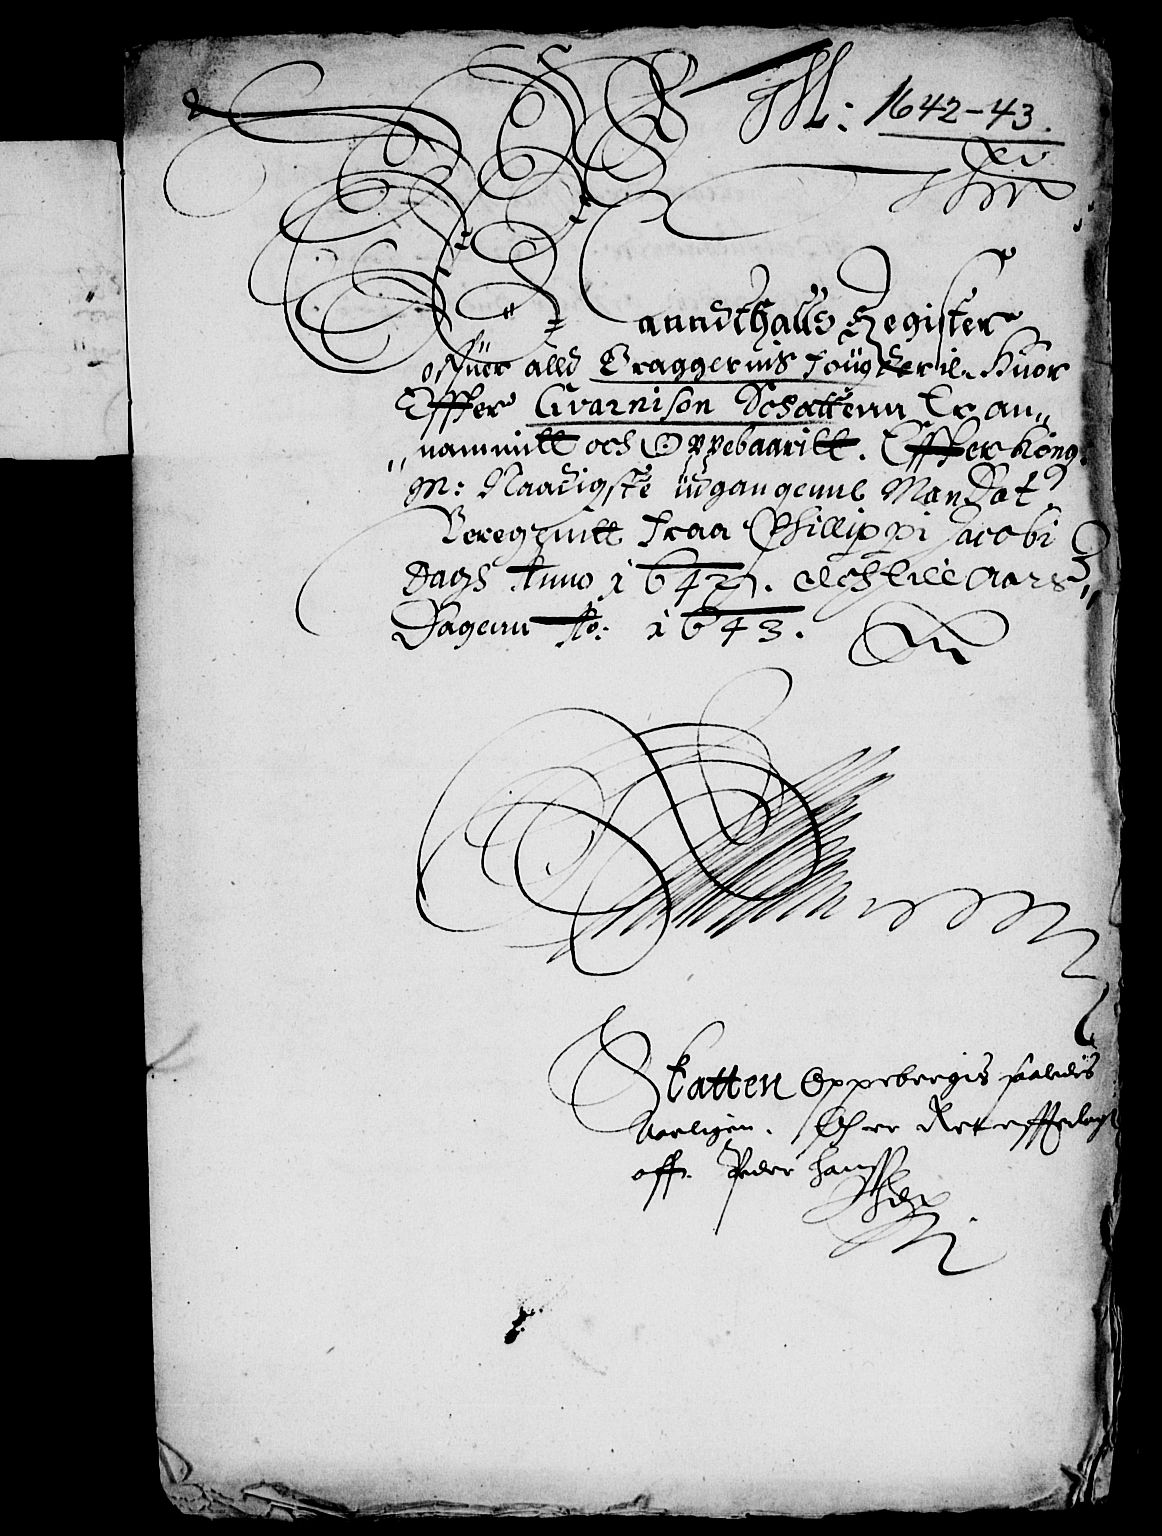 M: 1642-43.
Manndthalls Register
offuer alld Braggernis fougderie. Huor
Effter Gvarnison Schattenn Er an,,
,,nammitt och Oppebaaritt. Effter Kong:
M: Naadigste üdgangenne Mandat
Beregnitt fraa Phillippi Jacobi
Dags Anno 1642. och till Aars
Dagenn Ao: 1643.
Skatten Oppebergis saaledis
Aarligen. Och er Ret
off. Peder Hanss